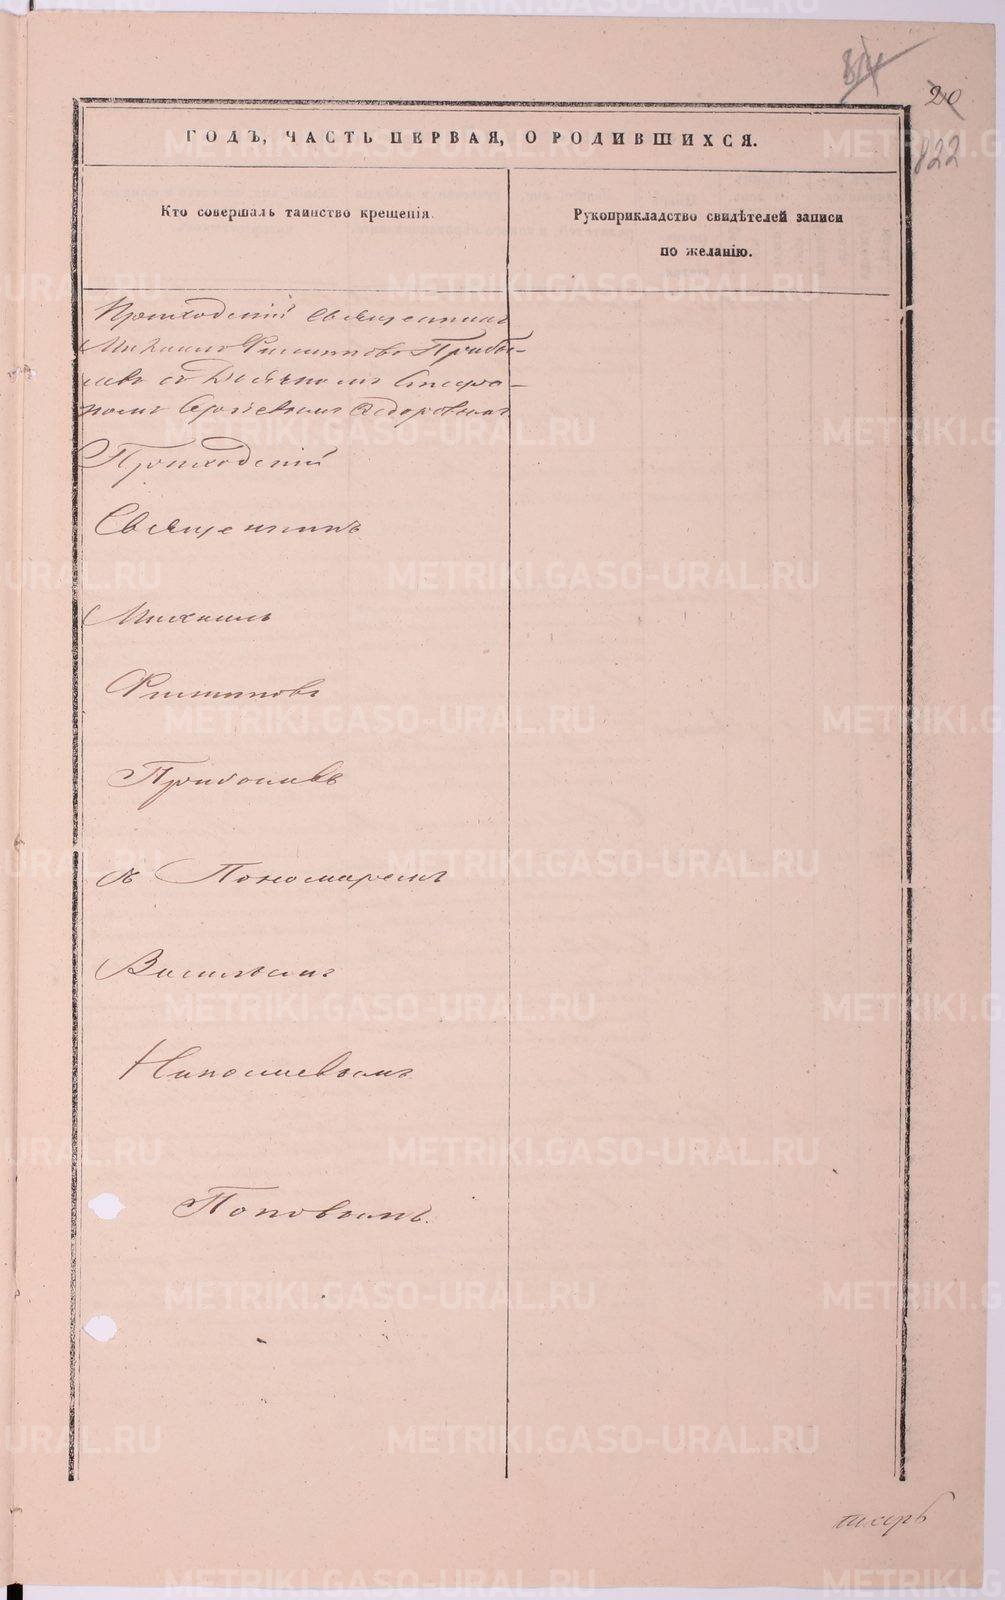 814
20
822
ГОДЪ, ЧАСТЬ ПЕРВАЯ, О РОДИВШИХСЯ.
Кто совершалъ таинство крещенія.
Рукоприкладство свидѣтелей записи
по желанію.
Приходскій Священникъ
Михаилъ Филиповъ Прибы-
левъ съ Дьячкомъ Стефа-
номъ Сергѣевымъ Ѳедоровымъ
Приходскій
Священникъ
Михаилъ
Филиповъ
Прибылевъ
съ Пономаремъ
Васильемъ
Николаевымъ
Поповымъ.
METRIKI.GASO-URAL.RU